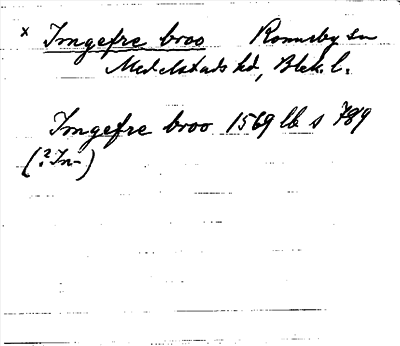 x Imgefre broo Ronneby sn
Medelstads hd, Blek. l.
Imgefre broo 1569 lb s 789
(?In-)